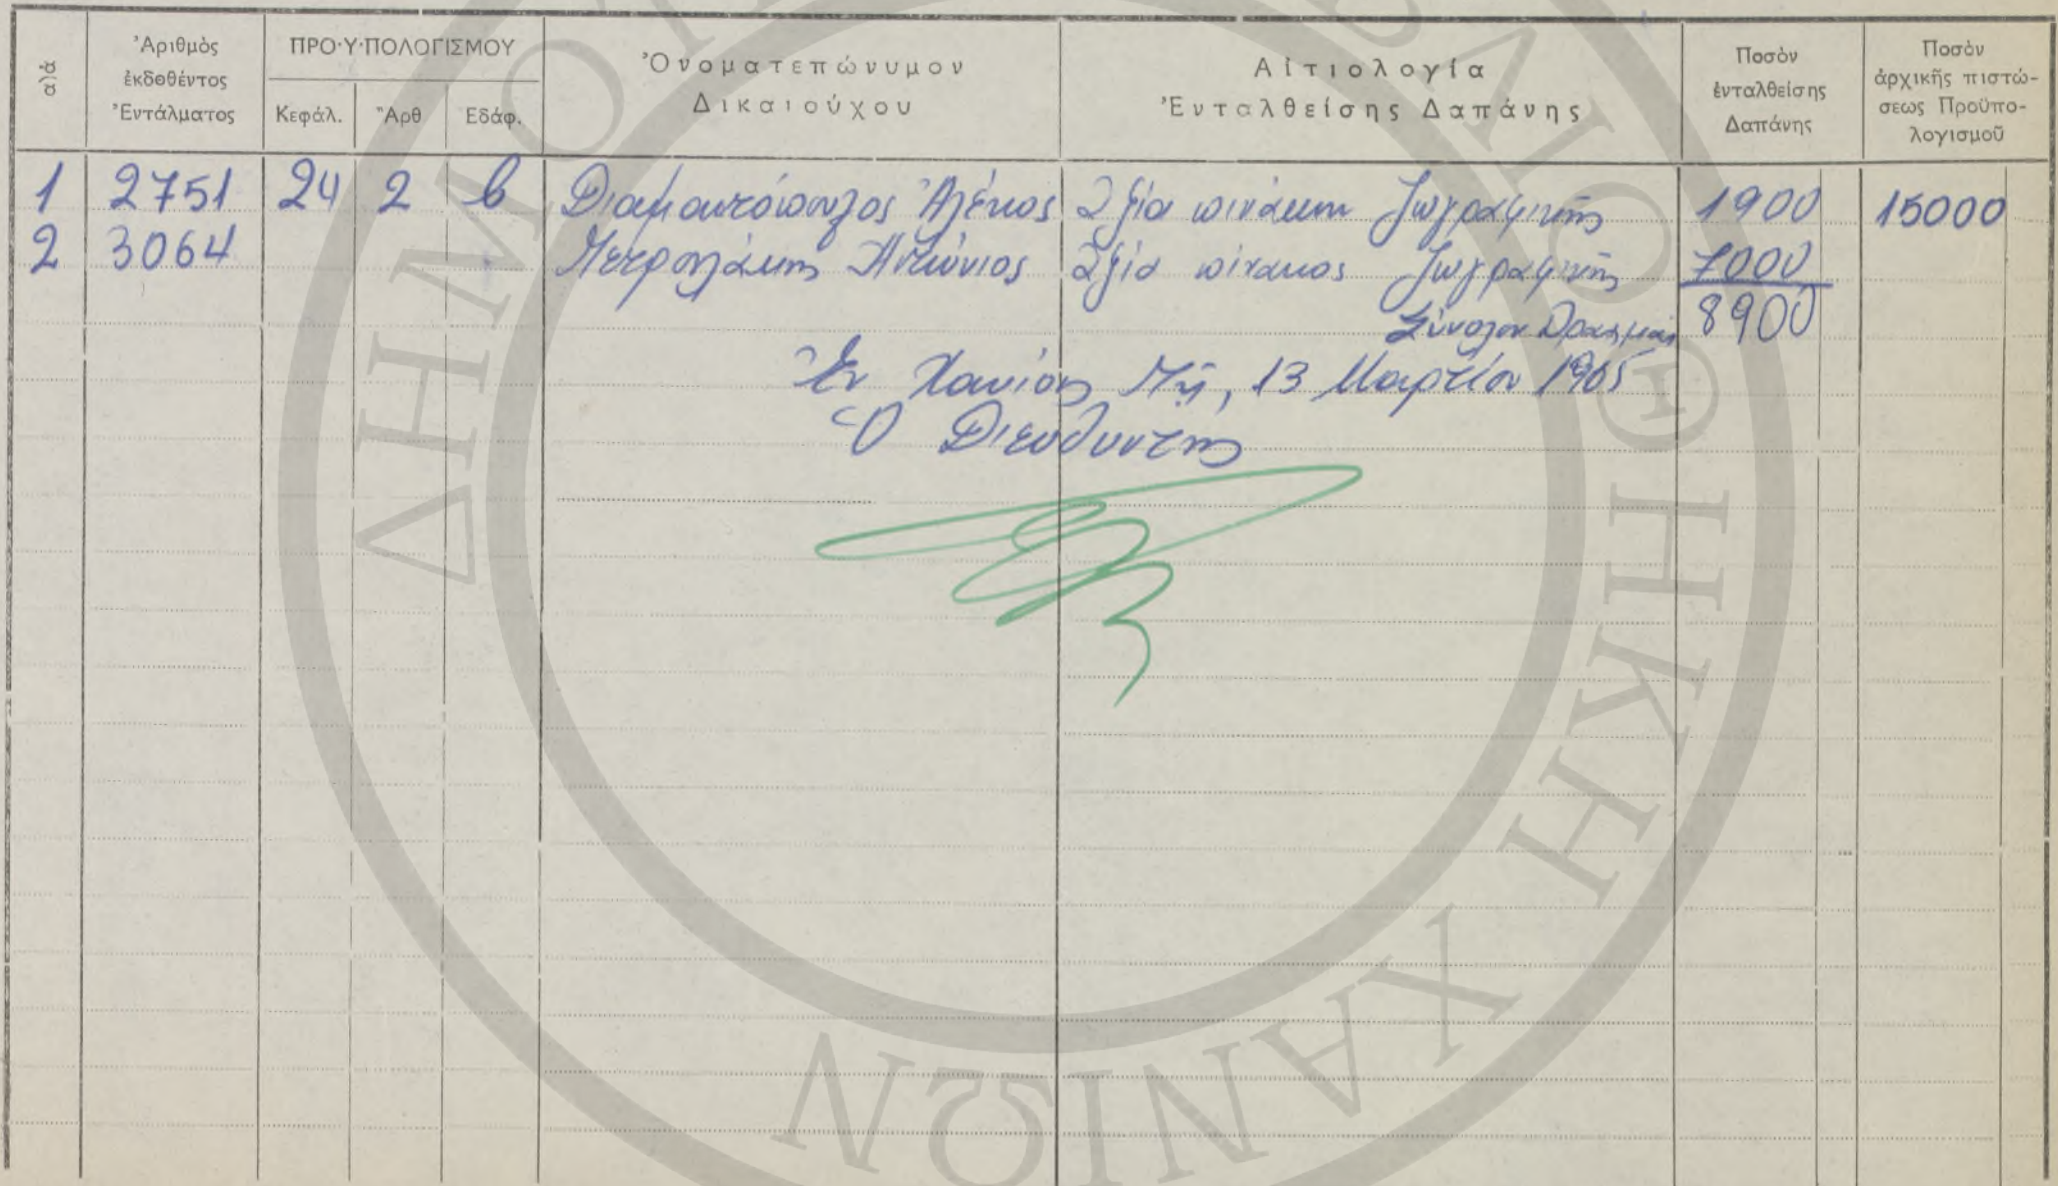 α)α
Ἀριθμὸς ἐκδοθέντος Ἐντάλματος
ΠΡΟ·Υ·ΠΟΛΟΓΙΣΜΟΥ
Κεφάλ. Ἄρθ Εδάφ.
Ὀνοματεπώνυμον Δικαιούχου
Αἰτιολογία Ἐνταλθείσης Δαπάνης
Ποσὸν ἐνταλθείσης Δαπάνης
Ποσὸν ἀρχικῆς πιστώσεως Προϋπολογισμοῦ
1 2751 24 2 β Διαμαντόπουλος Ἀλέκος Ἀξία πινάκων ζωγραφικῆς 1900 15000
2 3064 Πετρουλάκης Ἀντώνιος Ἀξία πίνακος ζωγραφικῆς 7000
Σύνολον Δραχμαὶ 8900
Ἐν Χανίοις τῇ, 13 Μαρτίου 1965
Ὁ Διευθυντὴς
ΔΗΜΟΤ ΒΛΙΟΘΗΚΗ ΧΑΝΙΩΝ